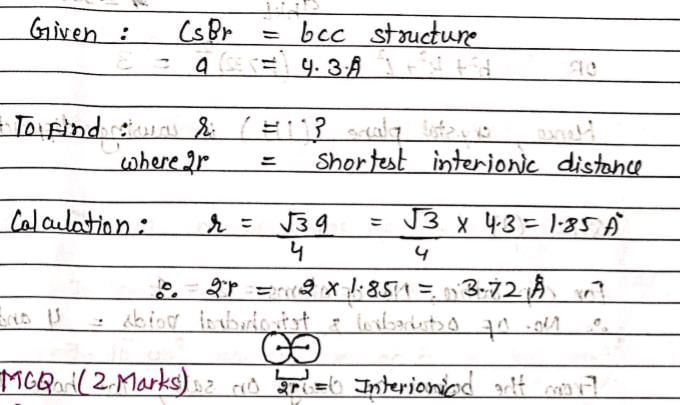 Given : CsBr = bcc structure
a = 4.3 Å
To Find : r = ?
where 2r = shortest interionic distance
Calculation : r = √3 a / 4 = √3 / 4 x 4.3 = 1.85 Å
∴ 2r = 2 x 1.851 = 3.72 Å
MCQ (2 Marks) 2r = Interionic